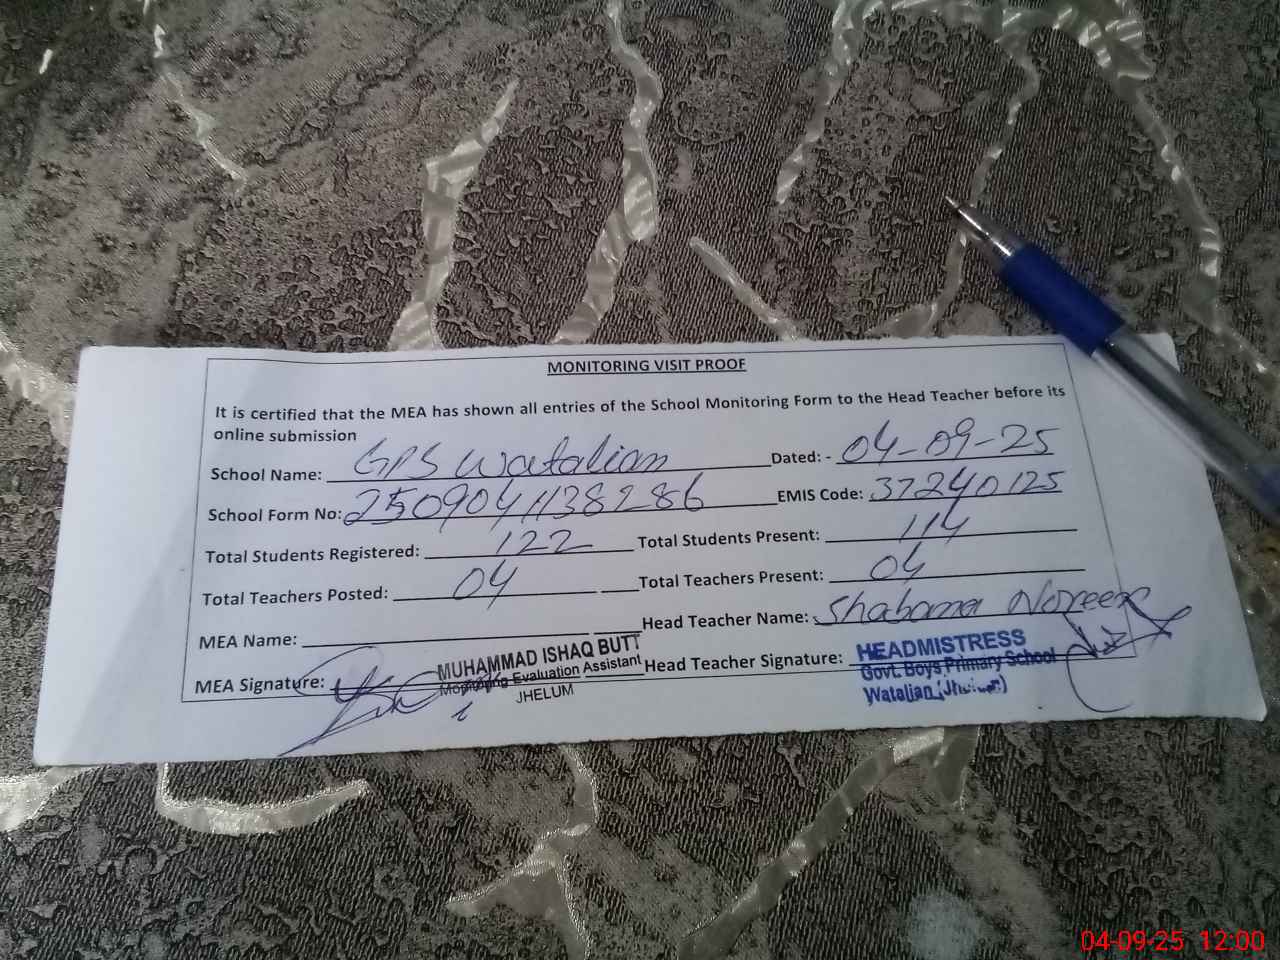 MONITORING VISIT PROOF
It is certified that the MEA has shown all entries of the School Monitoring Form to the Head Teacher before its
online submission
School Name: GPS Watalian Dated: - 04-09-25
School Form No: 2509041138286 EMIS Code: 37240125
Total Students Registered: 122 Total Students Present: 114
Total Teachers Posted: 04 Total Teachers Present: 04
MEA Name: Head Teacher Name: Shabana Noreen
MEA Signature: Head Teacher Signature:
MUHAMMAD ISHAQ BUTT
Monitoring Evaluation Assistant
JHELUM
HEADMISTRESS
Govt. Boys Primary School
Watalian (Jhelum)
04-09-25 12:00